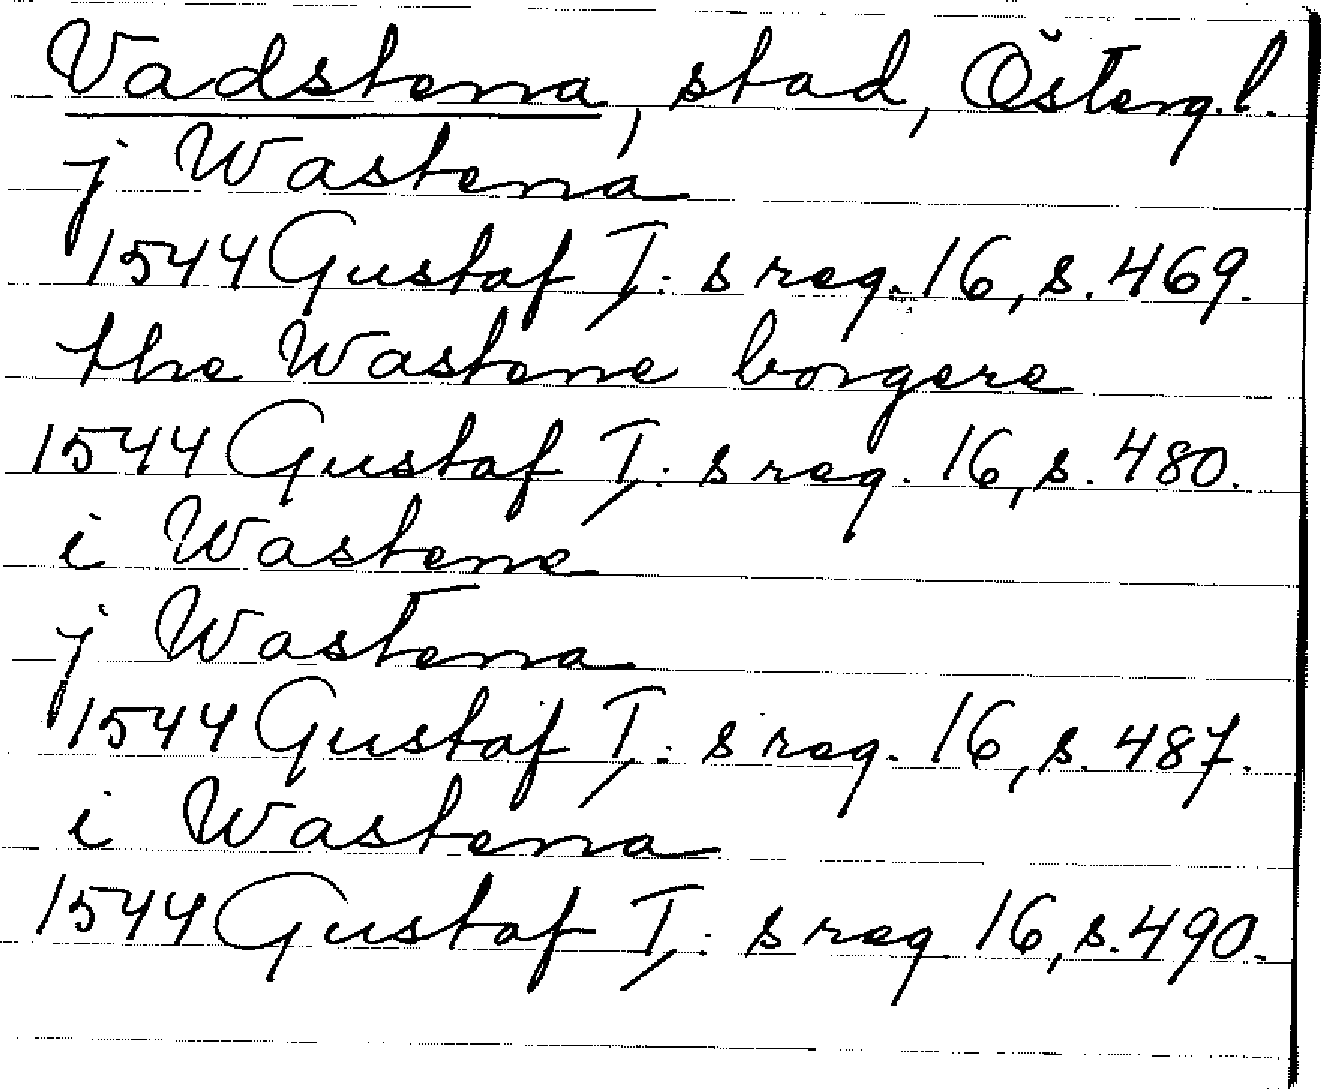 Vadstena, stad, Österg.l.
j Wastena
1544 Gustaf I:s reg. 16, s. 469.
the Wastene borgere
1544 Gustaf I:s reg. 16, s. 480.
i Wastene
j Wastena
1544 Gustaf I:s reg. 16, s. 487.
i Wastena
1544 Gustaf I:s reg 16, s. 490.